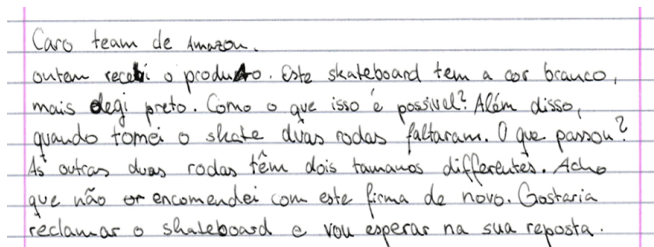 Caro team de Amazon.
outem recebi o produto. Este skateboard tem a cor branco,
mais elegi preto. Como o que isso é possivel? Além disso,
quando tomei o skate duas rodas faltaram. O que passou?
As outras duas rodas têm dois tamanos differentes. Acho
que não or encomendei com este firma de novo. Gostaria
reclamar o skateboard e vou esperar na sua reposta.